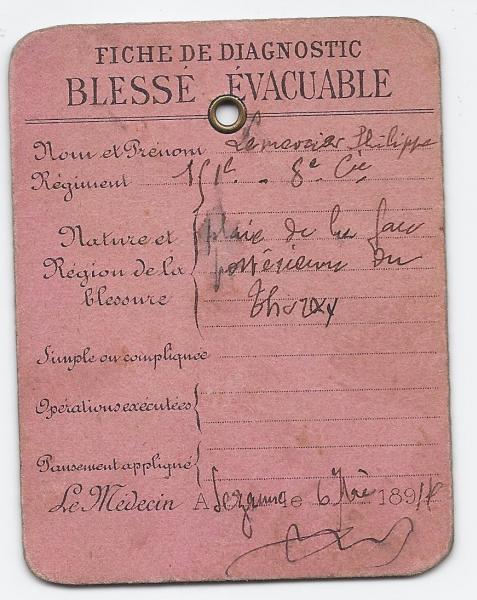 FICHE DE DIAGNOSTIC
BLESSÉ ÉVACUABLE
Nom et Prénom Lemercier Philippe
Régiment 8e Cie
Nature et plaie de la face
Région de la postérieure du
blessure Thorax
Simple ou compliquée
Opérations exécutées
Pansement appliqué
Le Médecin A le 6 189